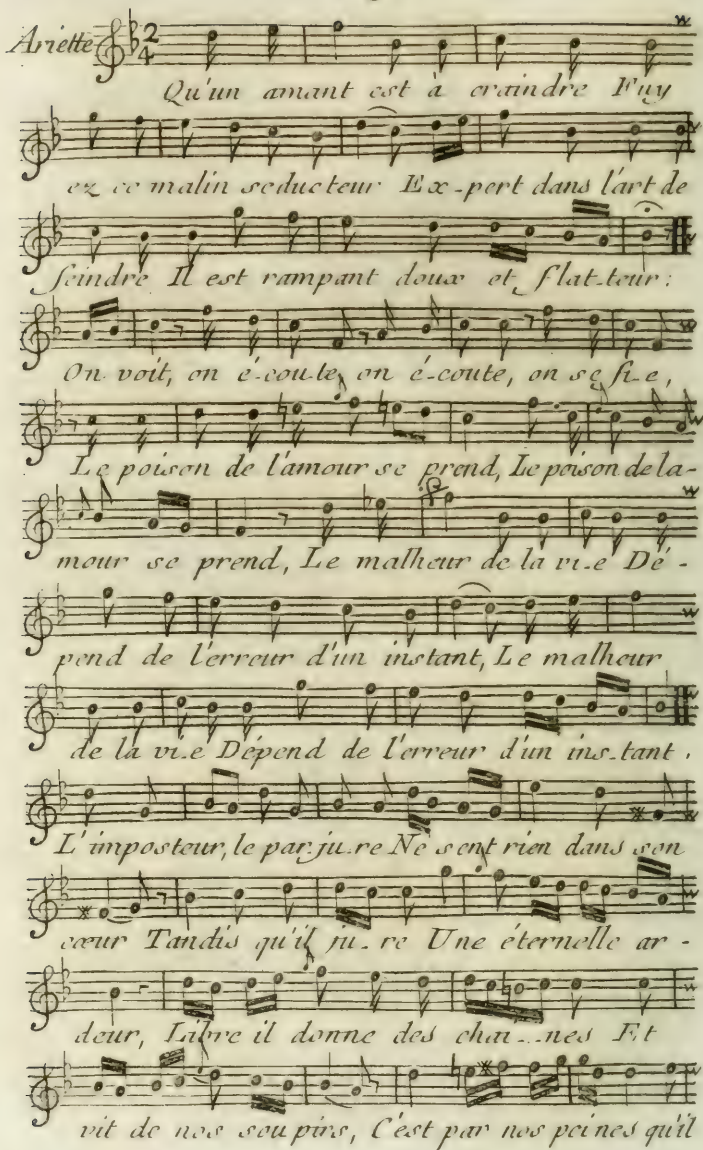 Ariette 2 4
Qu'un amant est à craindre Fuy
ez ce malin seducteur Ex-pert dans l'art de
feindre Il est rampant doux et flat-teur:
On voit, on é-coute, on é-coute, on se fi-e,
Le poison de l'amour se prend, Le poison de la-
mour se prend, Le malheur de la vi-e Dé-
pend de l'erreur d'un instant, Le malheur
de la vi.e Dépend de l'erreur d'un ins-tant.
L'imposteur, le par.ju-re Ne sent rien dans son
cœur Tandis qu'il ju-re Une éternelle ar-
deur, Libre il donne des chai---nes Et
vit de nos soupirs, C'est par nos peines qu'il